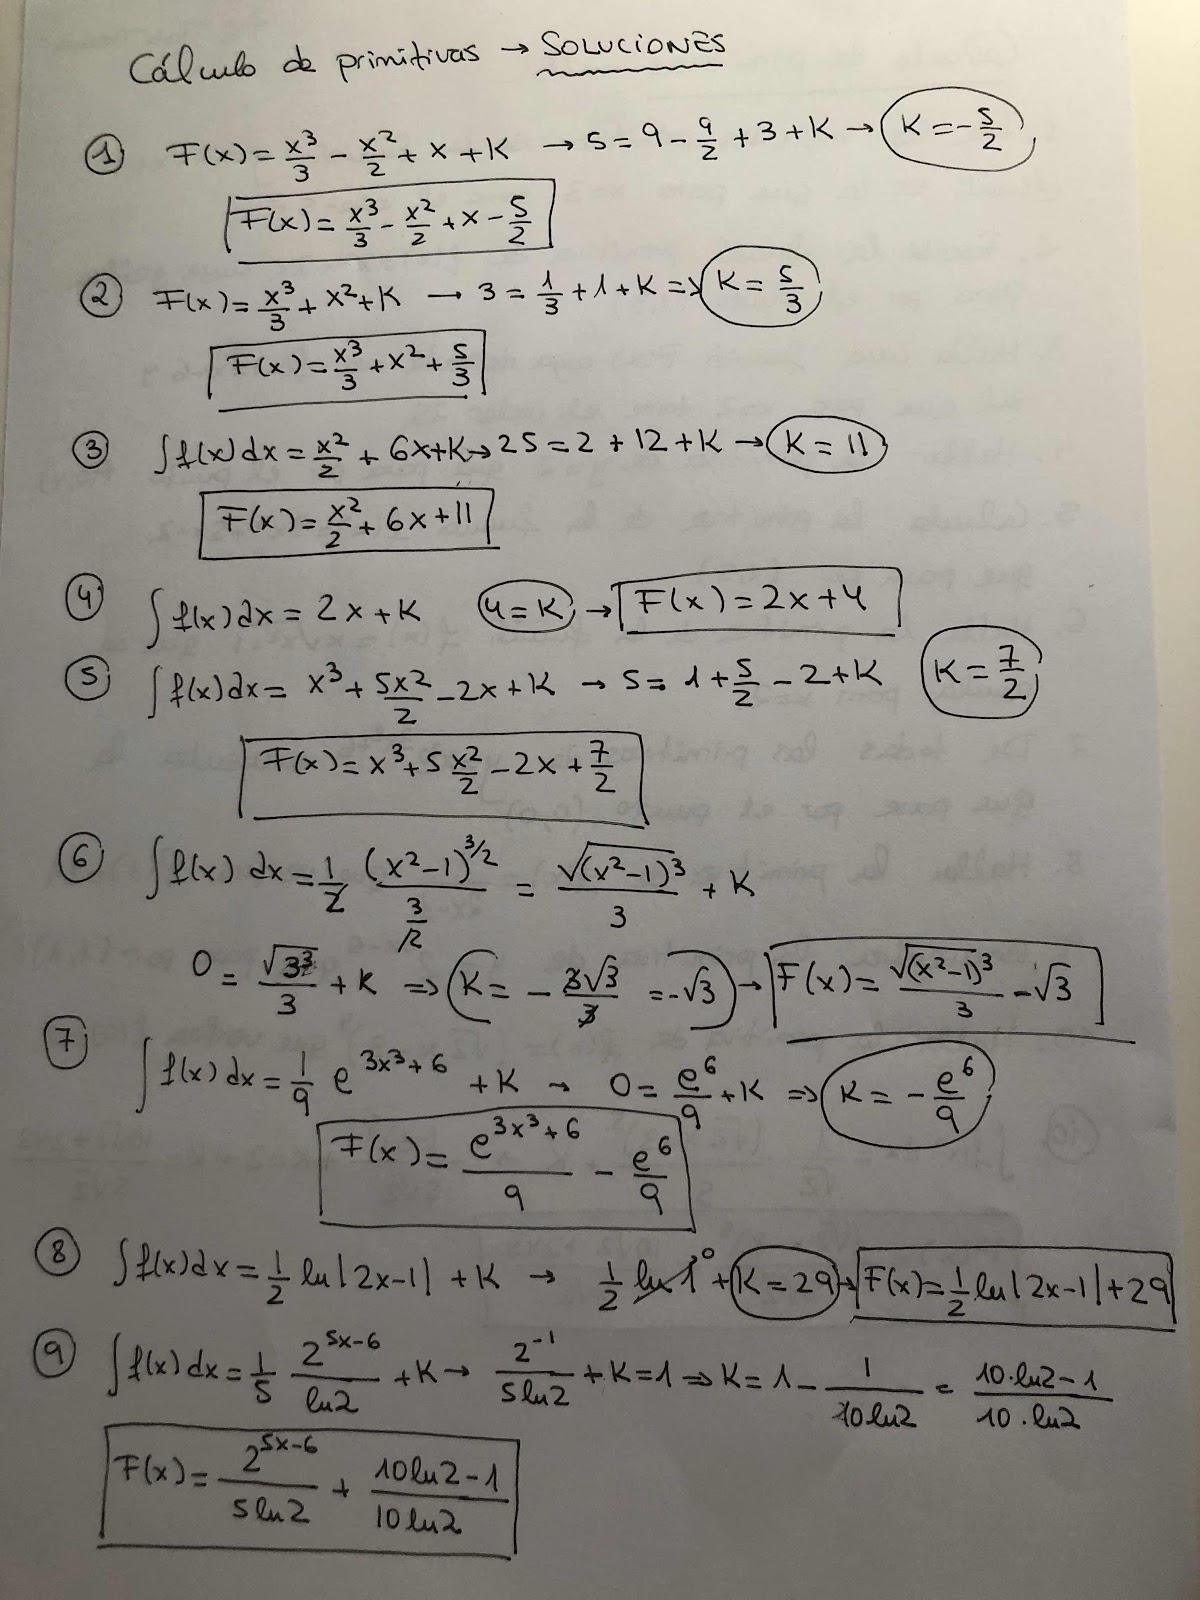 Cálculo de primitivas → SOLUCIONES
① F(x) = x³/3 - x²/2 + x + K → 5 = 9 - 9/2 + 3 + K → K = -5/2
F(x) = x³/3 - x²/2 + x - 5/2
② F(x) = x³/3 + x² + K → 3 = 1/3 + 1 + K ⇒ K = 5/3
F(x) = x³/3 + x² + 5/3
③ ∫f(x)dx = x²/2 + 6x + K → 25 = 2 + 12 + K → K = 11
F(x) = x²/2 + 6x + 11
④ ∫f(x)dx = 2x + K 4 = K → F(x) = 2x + 4
⑤ ∫f(x)dx = x³ + 5x²/2 - 2x + K → 5 = 1 + 5/2 - 2 + K K = 7/2
F(x) = x³ + 5x²/2 - 2x + 7/2
⑥ ∫f(x) dx = 1/2 (x²-1)^(3/2)/(3/2) = √(x²-1)³/3 + K
0 = √3³/3 + K ⇒ K = -3√3/3 = -√3 → F(x) = √(x²-1)³/3 - √3
⑦ ∫f(x)dx = 1/9 e^(3x³+6) + K → 0 = e⁶/9 + K ⇒ K = -e⁶/9
F(x) = e^(3x³+6)/9 - e⁶/9
⑧ ∫f(x)dx = 1/2 ln|2x-1| + K → 1/2 ln 1 ⁰ + K = 29 → F(x) = 1/2 ln|2x-1| + 29
⑨ ∫f(x)dx = 1/5 2^(5x-6)/ln2 + K → 2⁻¹/5ln2 + K = 1 ⇒ K = 1 - 1/10ln2 = 10·ln2-1/10·ln2
F(x) = 2^(5x-6)/5ln2 + 10ln2-1/10ln2